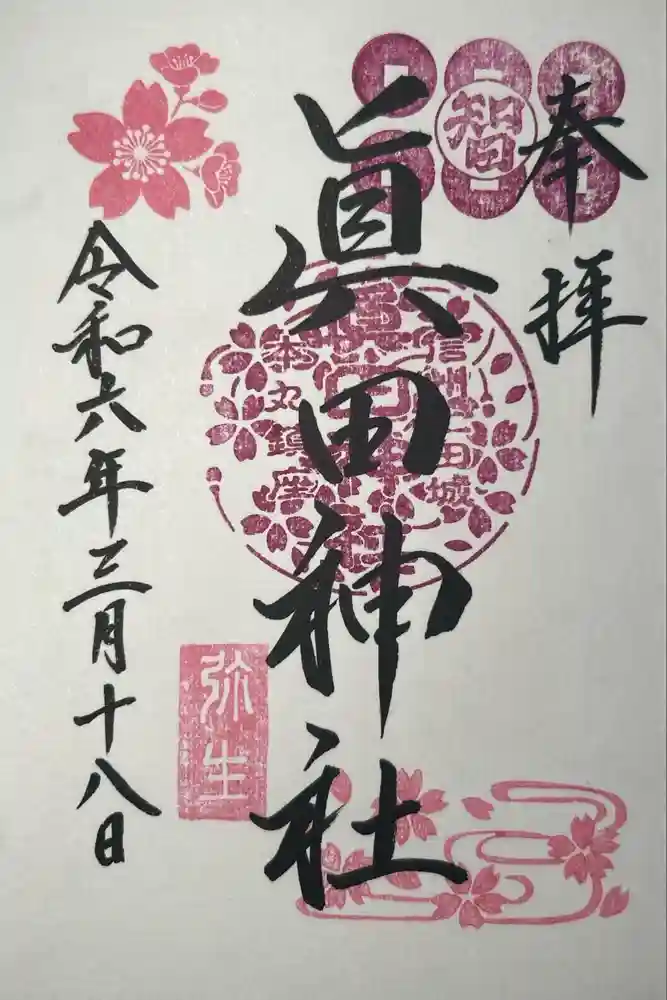 奉拝
智
眞田神社
信州上田城
本丸鎮座
弥生
令和六年三月十八日